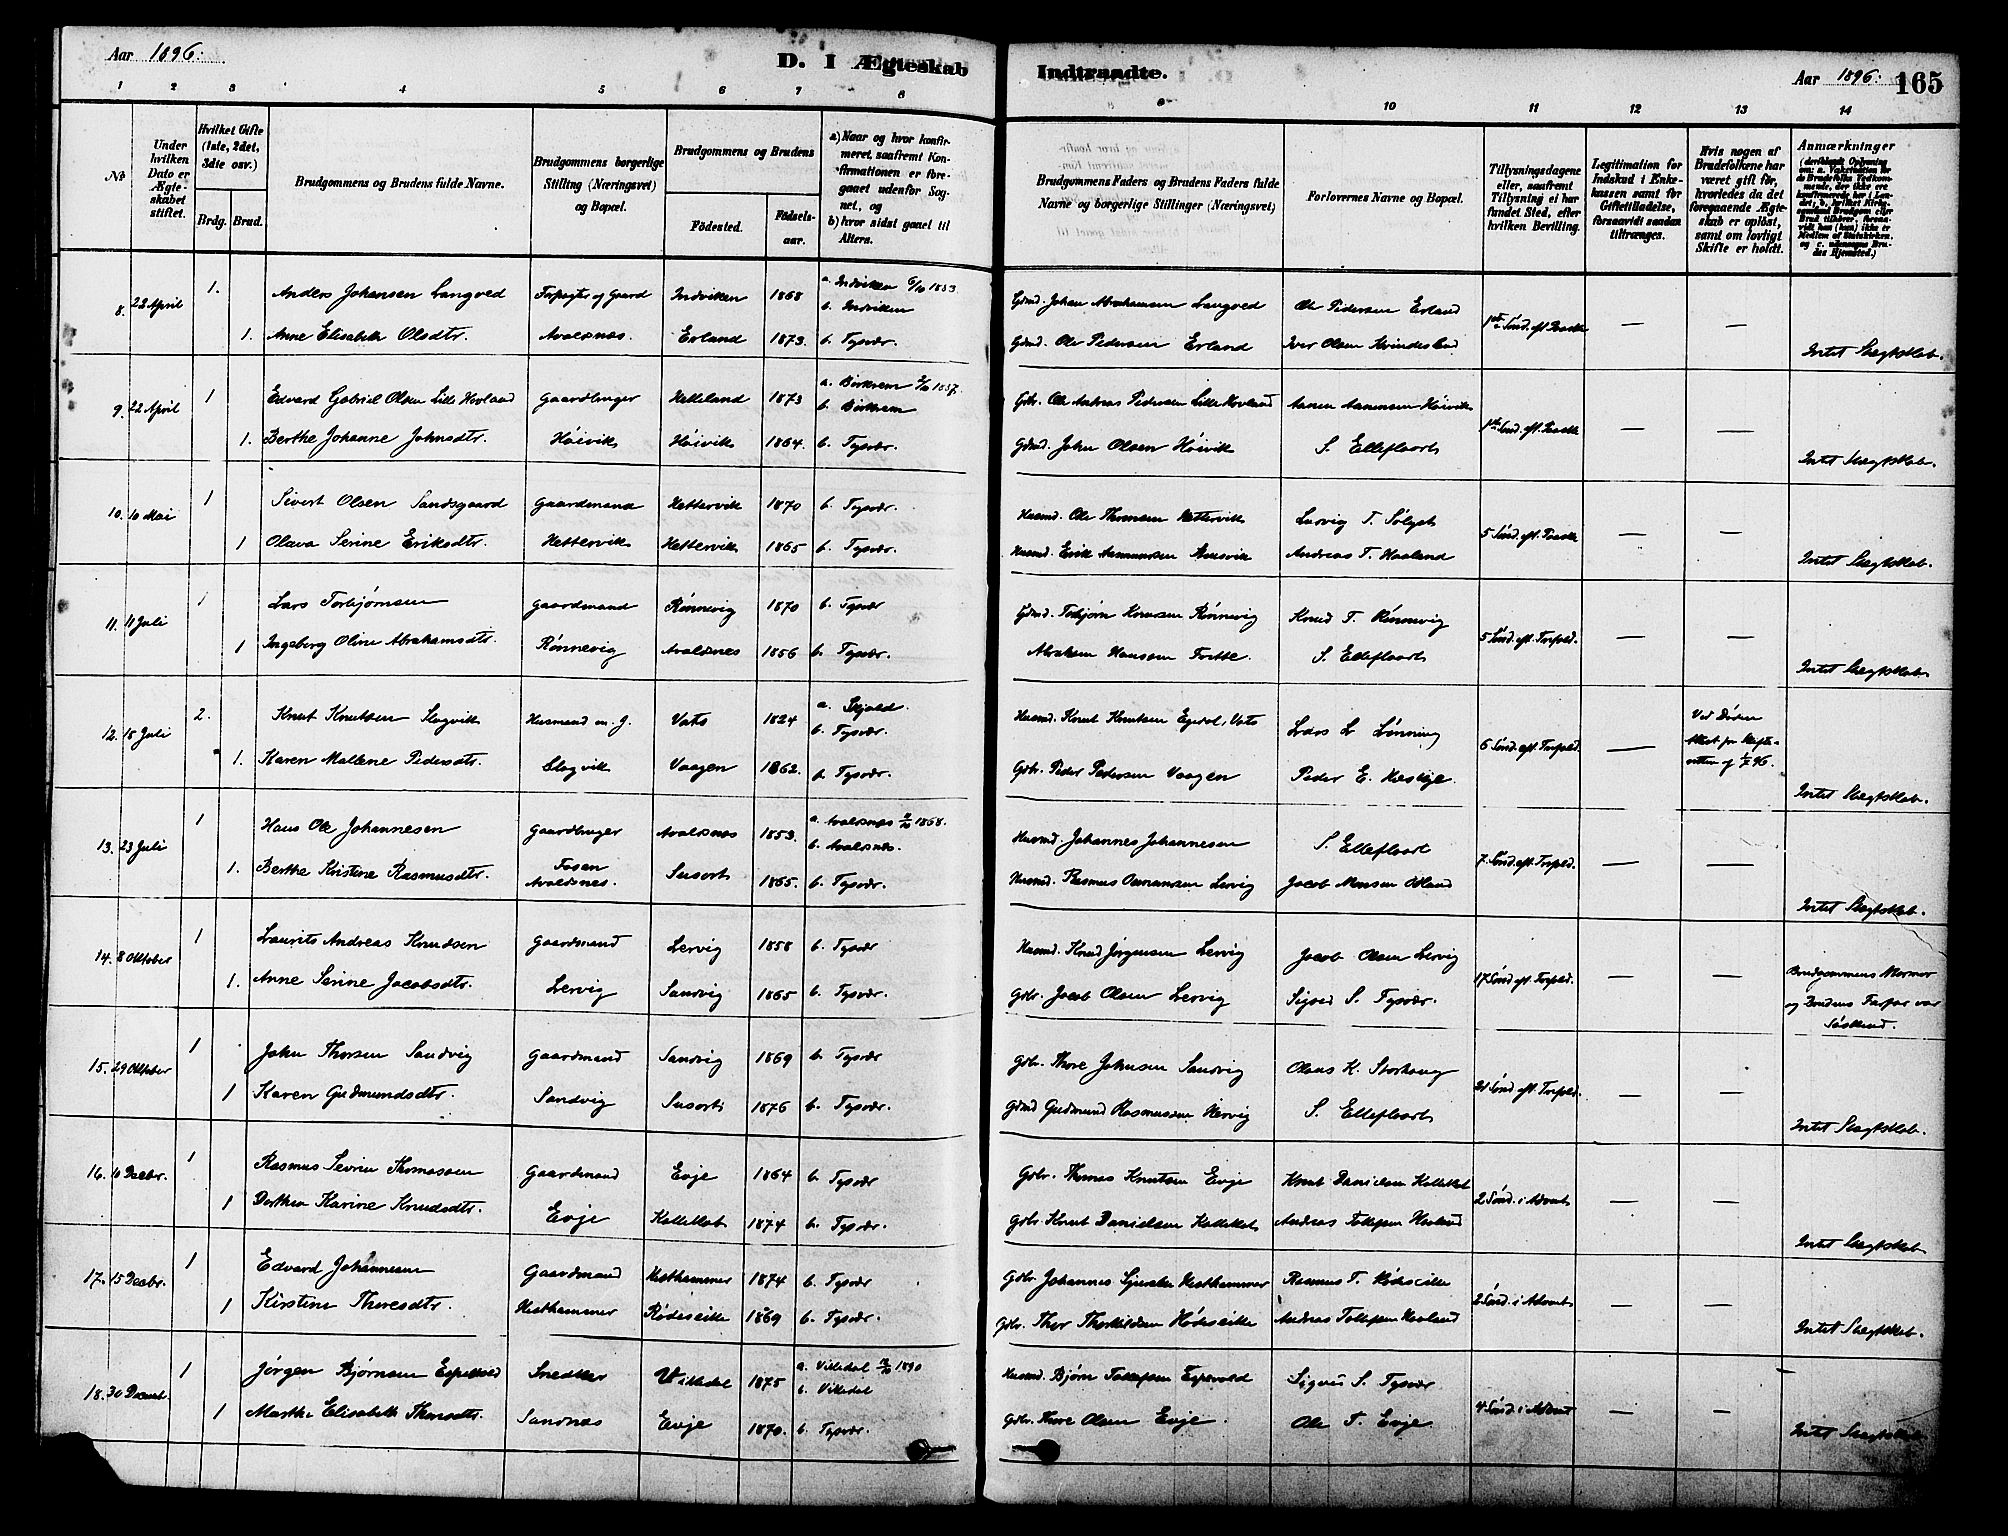 Aar 1896.
D. I Ægteskab Indtraadte.
Aar 1896.
165
1 2 3 4 5 6 7 8 9 10 11 12 13 14
No
Under hvilken Dato er Ægteskabet stiftet.
Hvilket Gifte (1ste, 2det, 3die osv.)
Brdg. Brud.
Brudgommens og Brudens fulde Navne.
Brudgommens borgerlige Stilling (Næringsvei) og Bopæl.
Brudgommens og Brudens
Fødested. Fødselsaar.
a) Naar og hvor konfirmeret, saafremt Konfirmationen er foregaaet udenfor Sognet, og
b) hvor sidst gaaet til Alters.
Brudgommens Faders og Brudens Faders fulde Navne og borgerlige Stillinger (Næringsvei)
Forlovernes Navne og Bopæl.
Tillysningsdagene eller, saafremt Tillysning ei har fundet Sted, efter hvilken Bevilling.
Legitimation for Indskud i Enkekassen samt for Giftetilladelse, forsaavidt saadan tiltrænges.
Hvis nogen af Brudefolkene har været gift før, hvorledes da det foregaaende Ægteskab er opløst, samt om lovligt Skifte er holdt.
Anmærkninger
8. 22 April 1. Anders Johansen Langved Forpagter af Gaard Indviken 1868 a. Indviken 1883 b. Indviken Gdmd. Johan Abrahamsen Langved Ole Pedersen Erland
1. Anne Elisabeth Olsdtr. Avaldsnes Erland 1873. b. Tysvær. Gdmd. Ole Pedersen Erland Iver Olsen 1ste Sønd. eft. Paaske — — Intet Slægtskab.
9. 22 April 1 Edvard Gabriel Olsen Lille Hovland Gaardbruger Helleland 1873 a. Birkrem 1887. b. Birkrem Gbr. Ole Andreas Pedersen Lille Hovland Aanen Aanensen Høivik
1. Berthe Johanne Johnsdtr. Høivik Høivik 1864. b. Tysvær. Gdmd. John Olsen Høivik S. Elleflaat 1ste Sønd. eft. Paaske — — Intet Slægtskab.
10. 10 Mai 1 Sivert Olsen Sandsgaard Gaardmand Hettervik 1870 b. Tysvær. Husmd. Ole Thomsen Hettervik Ludvig T.
1 Olava Serine Eriksdtr. Hettervik Hettervik 1865 b. Tysvær. Husmd. Erik Aamundsen Andreas T. Haaland 5 Sønd. eft. Paaske — — Intet Slægtskab.
11. 11 Juli 1 Lars Torbjørnsen Gaardmand Rønnevig 1870 b. Tysvær Gdmd. Torbjørn Knudsen Rønnevig Knud T. Rønnevig
1 Ingeborg Oline Abrahamsdtr. Rønnevig Avaldsnes 1856 b. Tysvær. Abraham Hansen S. Elleflaat 5 Sønd. eft. Trefold. — — Intet Slægtskab.
12. 18 Juli 2. Knut Knutsen Slogvik Husmand m. J. Vats 1824 a. Skjold. b. Tysvær. Husmd. Knut Knutsen Vats Lars L. Lønning
1. Karen Mallene Pedersdtr. Slogvik Vaagen 1862. b. Tysvær. Gbr. Peder Pedersen Vaagen Peder E. 6 Sønd. eft. Trefold. — Ved Døden Attest fra Skifteretten af 96. Intet Slægtskab.
13. 23 Juli 1 Hans Ole Johannesen Gaardbruger Avaldsnes 1853. a. Avaldsnes 1868. b. Avaldsnes. Husmd. Johannes Johannesen S. Elleflaat
1. Berthe Kristine Rasmusdtr. Fosen Avaldsnes. Susort 1865. b. Tysvær. Husmd. Rasmus Lervig Jacob Monsen 7 Sønd. eft. Trefold. — — Intet Slægtskab.
14. 8 Oktober 1 Laurits Andreas Knudsen Gaardmand Lervig 1858 b. Tysvær Husmd. Knud Jørgensen Lervig Jacob Olsen Lervig
1. Anne Serine Jacobsdtr. Lervig Sandvig 1865 b. Tysvær. Gbr. Jacob Olsen Lervig Sigved S. Tysvær. 17 Sønd. eft. Trefold. — — Brudgommens Mormor og Brudens Farfar var Søskend.
15. 29 Oktober 1 John Thorsen Sandvig Gaardmand Sandvig 1869 b. Tysvær Gbr. Thore Johnsen Sandvig Olaus K. Storhaug
1 Karen Gudmundsdtr. Sandvig Susort 1876 b. Tysvær. Gdmd Gudmund Rasmussen Hervig S. Elleflaat 21 Sønd. eft. Trefold. — — Intet Slægtskab.
16. 10 Decbr. 1 Rasmus Severin Thomassen Gaardmand Evje 1864 b. Tysvær Gbr. Thomas Knutsen Evje Knut Danielsen Kalleklot
1 Dorthea Karine Knudsdtr. Evje Kalleklot 1874 b. Tysvær. Gbr. Knut Danielsen Kalleklot Andreas Tollefsen Hovland 2 Sønd. i Advent — — Intet Slægtskab.
17. 15 Decbr. 1 Edvard Johannesen Gaardmand Hesthammer 1874 b. Tysvær Gbr. Johannes Sjursen Hesthammer Rasmus T. Rødseikke
1 Kirstine Thoresdtr. Hesthammer Rødseikke 1869 b. Tysvær. Gbr. Thor Thorkildsen Rødseikke Andreas Tollefsen Hovland 2 Sønd. i Advent — — Intet Slægtskab.
18. 30 Decmb. 1 Jørgen Bjørnsen Espevold Snedker Vikedal 1875 a. Vikedal 1890 b. Vikedal Husmd. Bjørn Tollefsen Espevold Sigved S. Tysvær
1 Marthe Elisabeth Thoresdtr. Sandnæs Evje 1870. b. Tysvær. Gbr. Thore Olsen Evje. Ole T. Evje. 4 Sønd. i Advent — — Intet Slægtskab.